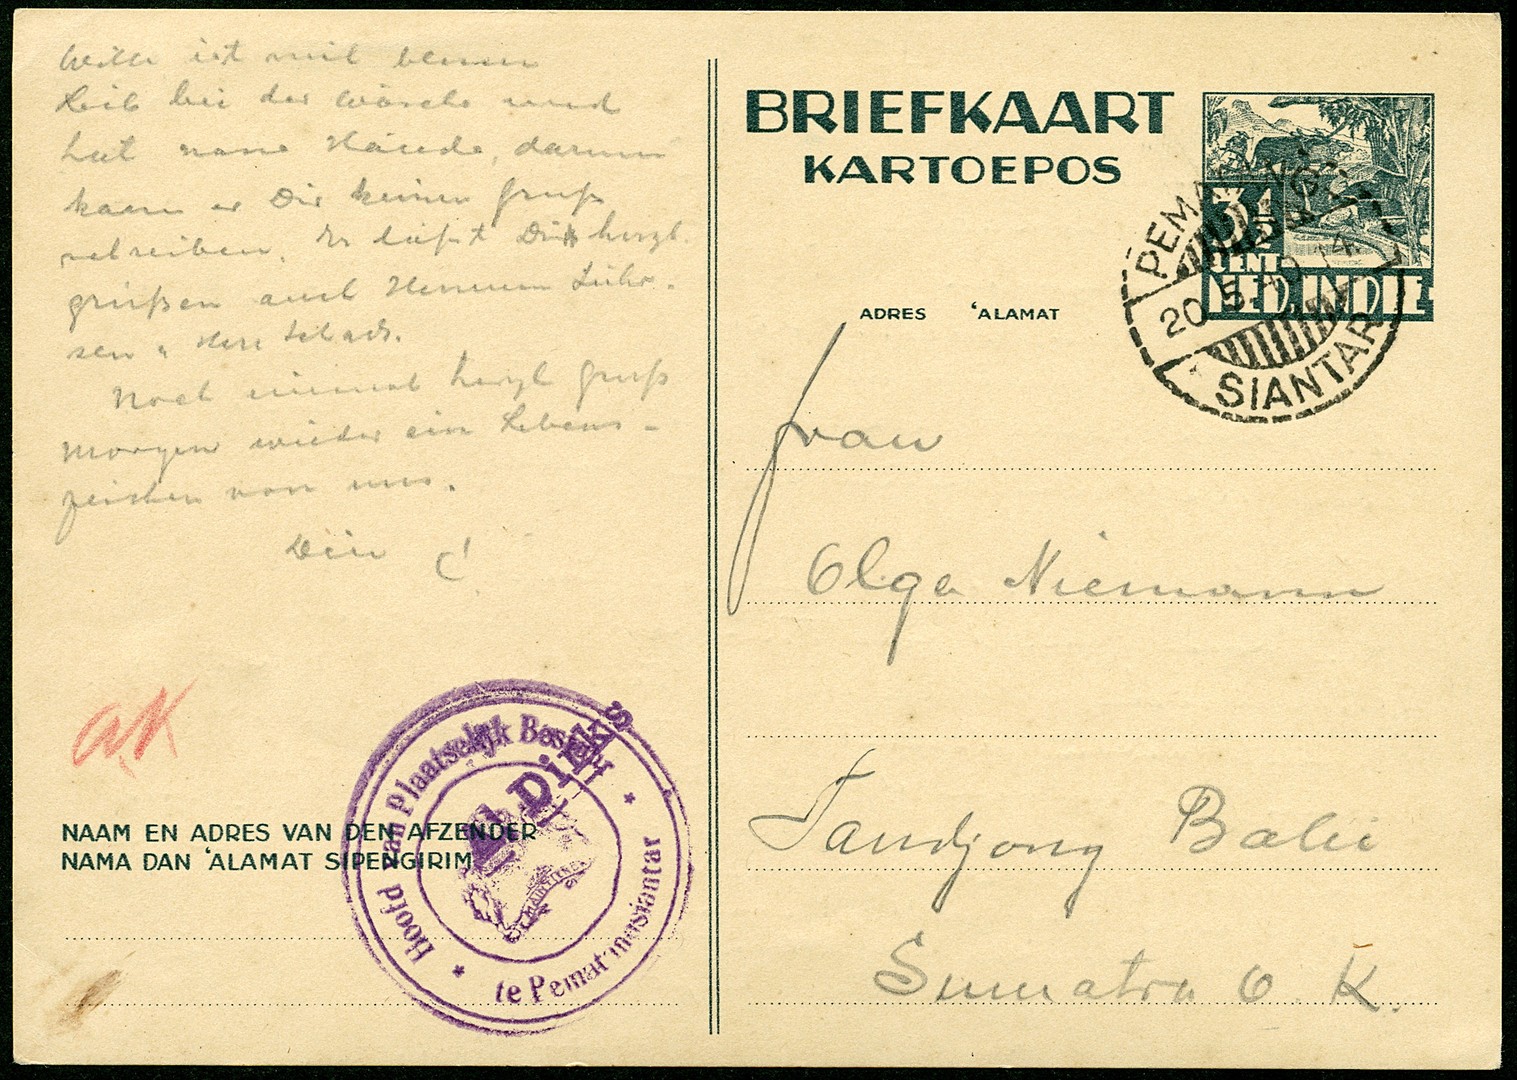 ist mit
Leib bei der Wäsche und
hat nasse Hände, darum
kann er Dir keinen Gruß
schreiben. Er läßt Dich herzl.
grüßen auch Hermann Lühr-
sen u Herr
Noch einmal herzl Gruß
Morgen wieder ein Lebens-
zeichen von uns.
Dein
aK
NAAM EN ADRES VAN DEN AFZENDER
NAMA DAN 'ALAMAT SIPENGIRIM
Hoofd van Plaatselijk Bestuur
te Pematangsiantar
BRIEFKAART
KARTOEPOS
3½
CENT
NED. INDIE
PEMATANG
20.5.40.14
SIANTAR
ADRES 'ALAMAT
Frau
Olga Niemann
Tandjong Balei
Sumatra O. K.